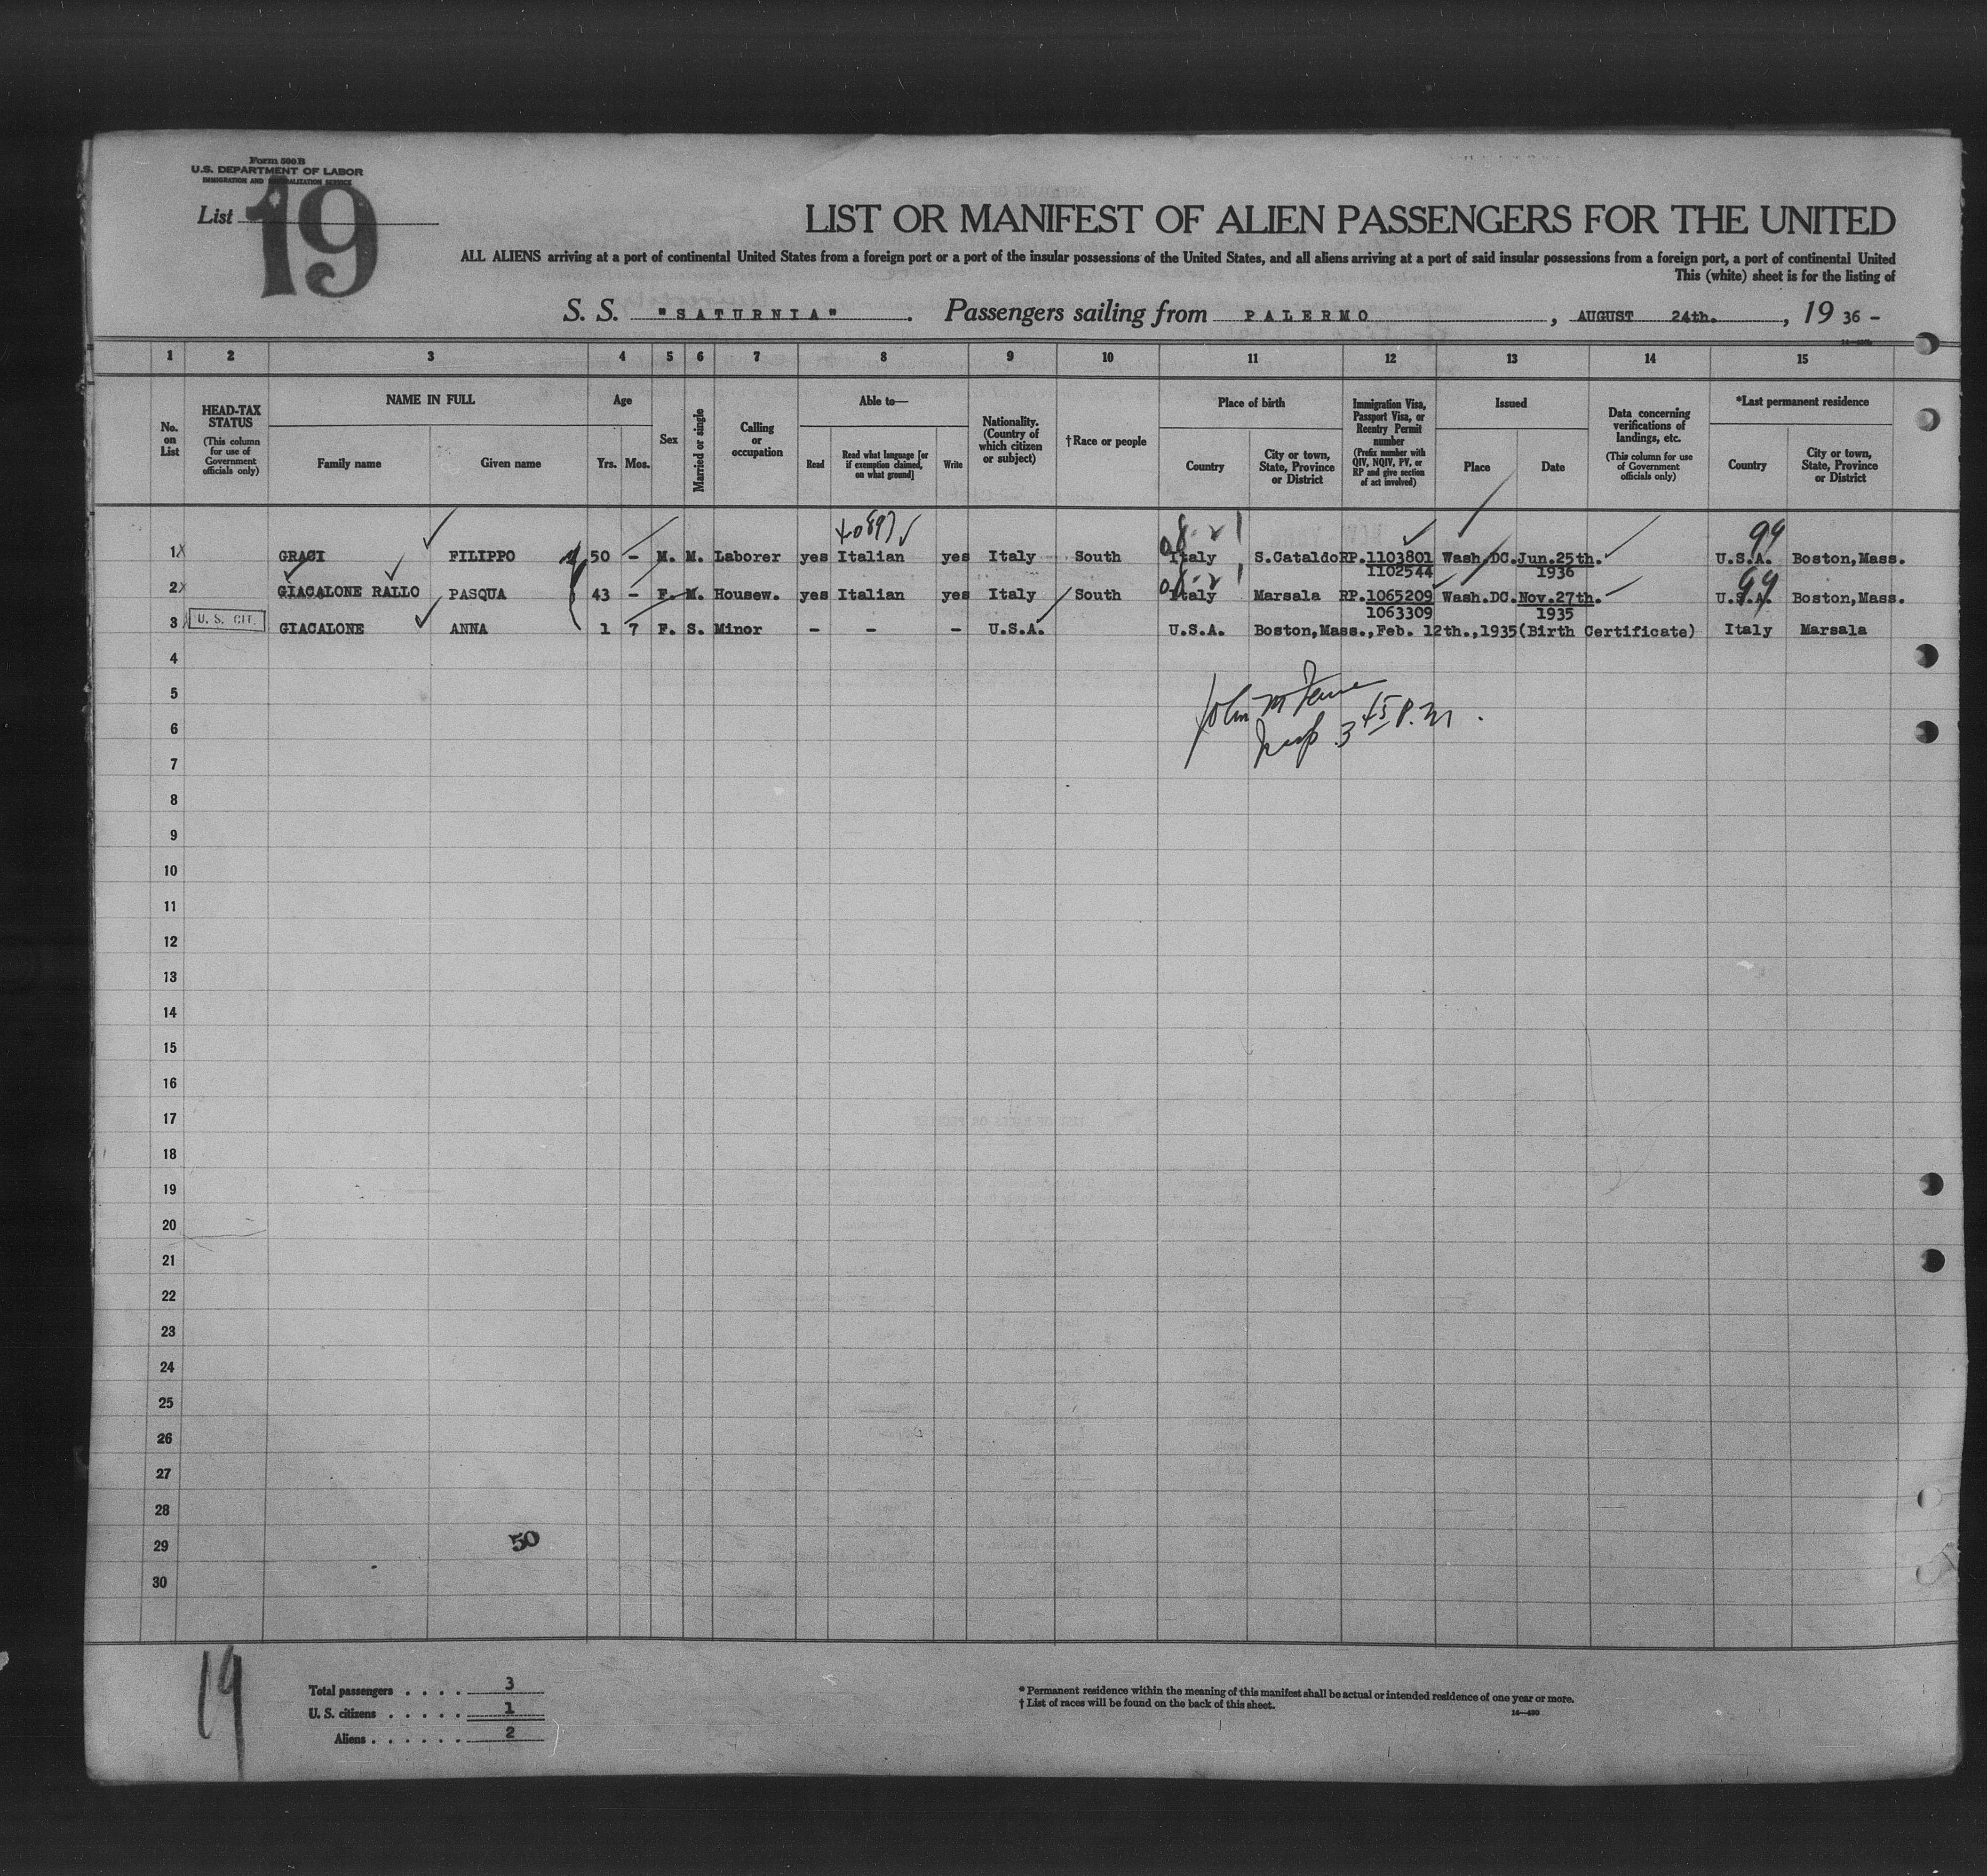 Form 500 B
U.S. DEPARTMENT OF LABOR
IMMIGRATION AND NATURALIZATION SERVICE
List 19
LIST OR MANIFEST OF ALIEN PASSENGERS FOR THE UNITED
ALL ALIENS arriving at a port of continental United States from a foreign port or a port of the insular possessions of the United States, and all aliens arriving at a port of said insular possessions from a foreign port, a port of continental United
This (white) sheet is for the listing of
S. S. "SATURNIA". Passengers sailing from PALERMO, AUGUST 24th., 1936-
1 2 3 4 5 6 7 8 9 10 11 12 13 14 15
No. on List
HEAD-TAX STATUS (This column for use of Government officials only)
NAME IN FULL
Family name
Given name
Age
Yrs. Mos.
Sex
Married or single
Calling or occupation
Able to—
Read
Read what language [or if exemption claimed, on what ground]
Write
Nationality. (Country of which citizen or subject)
†Race or people
Place of birth
Country
City or town, State, Province or District
Immigration Visa, Passport Visa, or Reentry Permit number (Prefix number with QIV, NQIV, PV, or RP and give section of act involved)
Issued
Place
Date
Data concerning verifications of landings, etc. (This column for use of Government officials only)
*Last permanent residence
Country
City or town, State, Province or District
99
1 GRACI FILIPPO 50 - M. M. Laborer yes Italian yes Italy South Italy S.Cataldo RP.1103801 Wash.DC. Jun.25th. U.S.A. Boston,Mass.
1102544 1936
99
2 GIACALONE RALLO PASQUA 43 - F. M. Housew. yes Italian yes Italy South Italy Marsala RP.1065209 Wash.DC. Nov.27th. U.S.A. Boston,Mass.
1063309 1935
3 U. S. CIT. GIACALONE ANNA 1 7 F. S. Minor - - - U.S.A. U.S.A. Boston,Mass.,Feb. 12th.,1935(Birth Certificate) Italy Marsala
4
5
John M
6
3 45 P.M.
7
8
9
10
11
12
13
14
15
16
17
18
19
20
21
22
23
24
25
26
27
28
29
50
30
19
Total passengers . . . . 3
U. S. citizens . . . . . 1
Aliens . . . . . . 2
* Permanent residence within the meaning of this manifest shall be actual or intended residence of one year or more.
† List of races will be found on the back of this sheet.
14—430